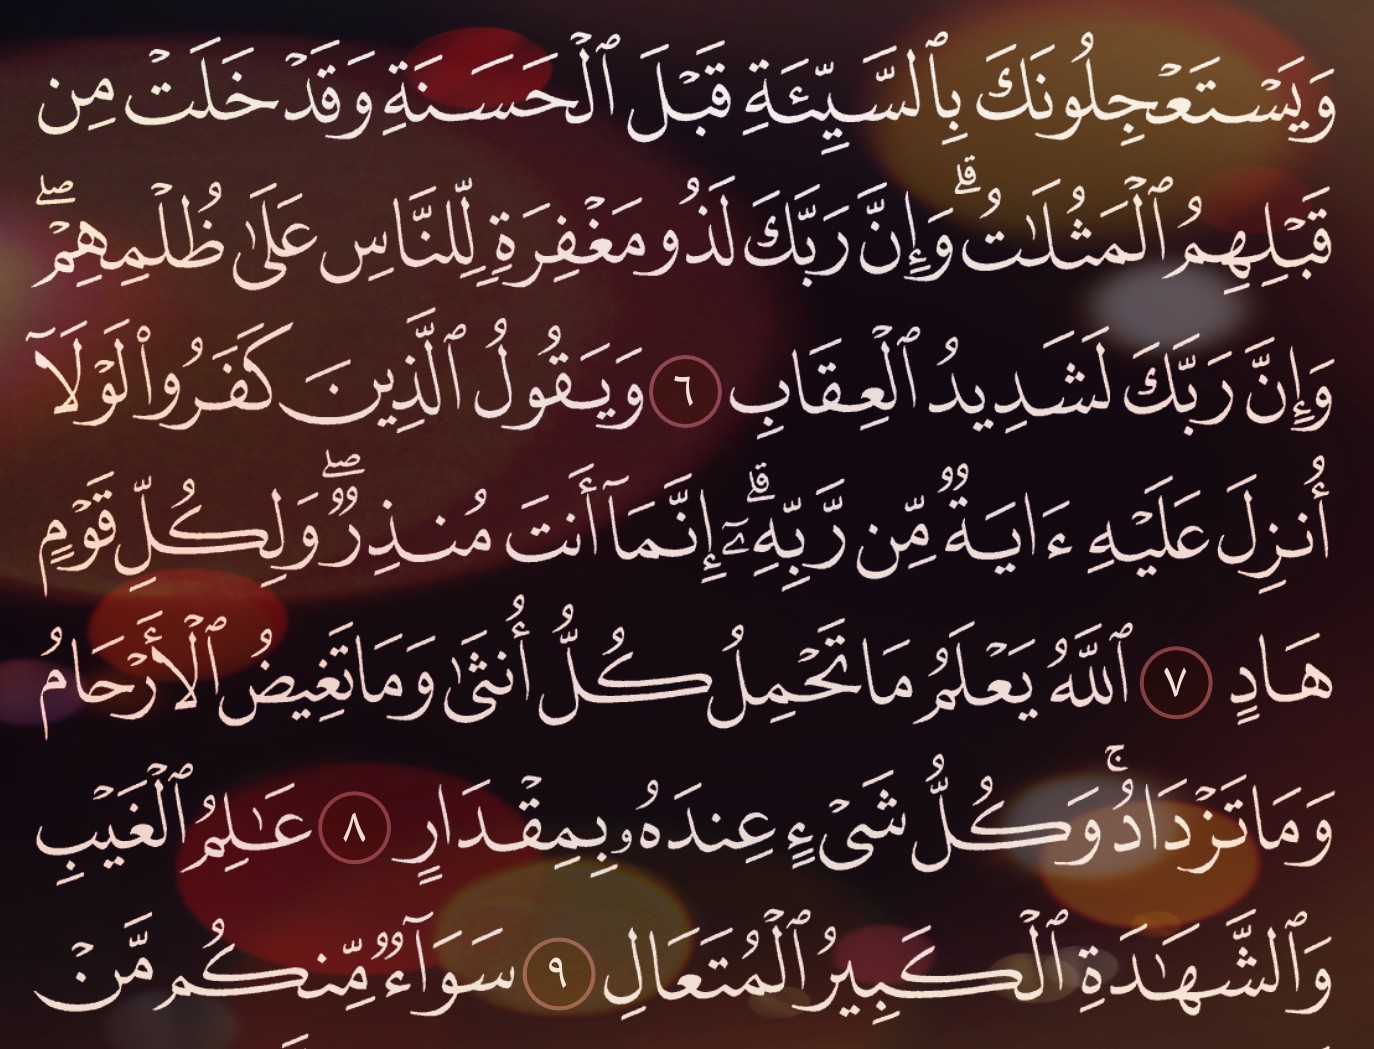 وَيَسْتَعْجِلُونَكَ بِٱلسَّيِّئَةِ قَبْلَ ٱلْحَسَنَةِ وَقَدْ خَلَتْ مِن
قَبْلِهِمُ ٱلْمَثُلَٰتُ ۗ وَإِنَّ رَبَّكَ لَذُو مَغْفِرَةٍ لِّلنَّاسِ عَلَىٰ ظُلْمِهِمْ ۖ
وَإِنَّ رَبَّكَ لَشَدِيدُ ٱلْعِقَابِ ٦ وَيَقُولُ ٱلَّذِينَ كَفَرُوا۟ لَوْلَآ
أُنزِلَ عَلَيْهِ ءَايَةٌ مِّن رَّبِّهِۦٓ ۗ إِنَّمَآ أَنتَ مُنذِرٌ ۖ وَلِكُلِّ قَوْمٍ
هَادٍ ٧ ٱللَّهُ يَعْلَمُ مَا تَحْمِلُ كُلُّ أُنثَىٰ وَمَا تَغِيضُ ٱلْأَرْحَامُ
وَمَا تَزْدَادُ ۚ وَكُلُّ شَىْءٍ عِندَهُۥ بِمِقْدَارٍ ٨ عَٰلِمُ ٱلْغَيْبِ
وَٱلشَّهَٰدَةِ ٱلْكَبِيرُ ٱلْمُتَعَالِ ٩ سَوَآءٌ مِّنكُم مَّنْ